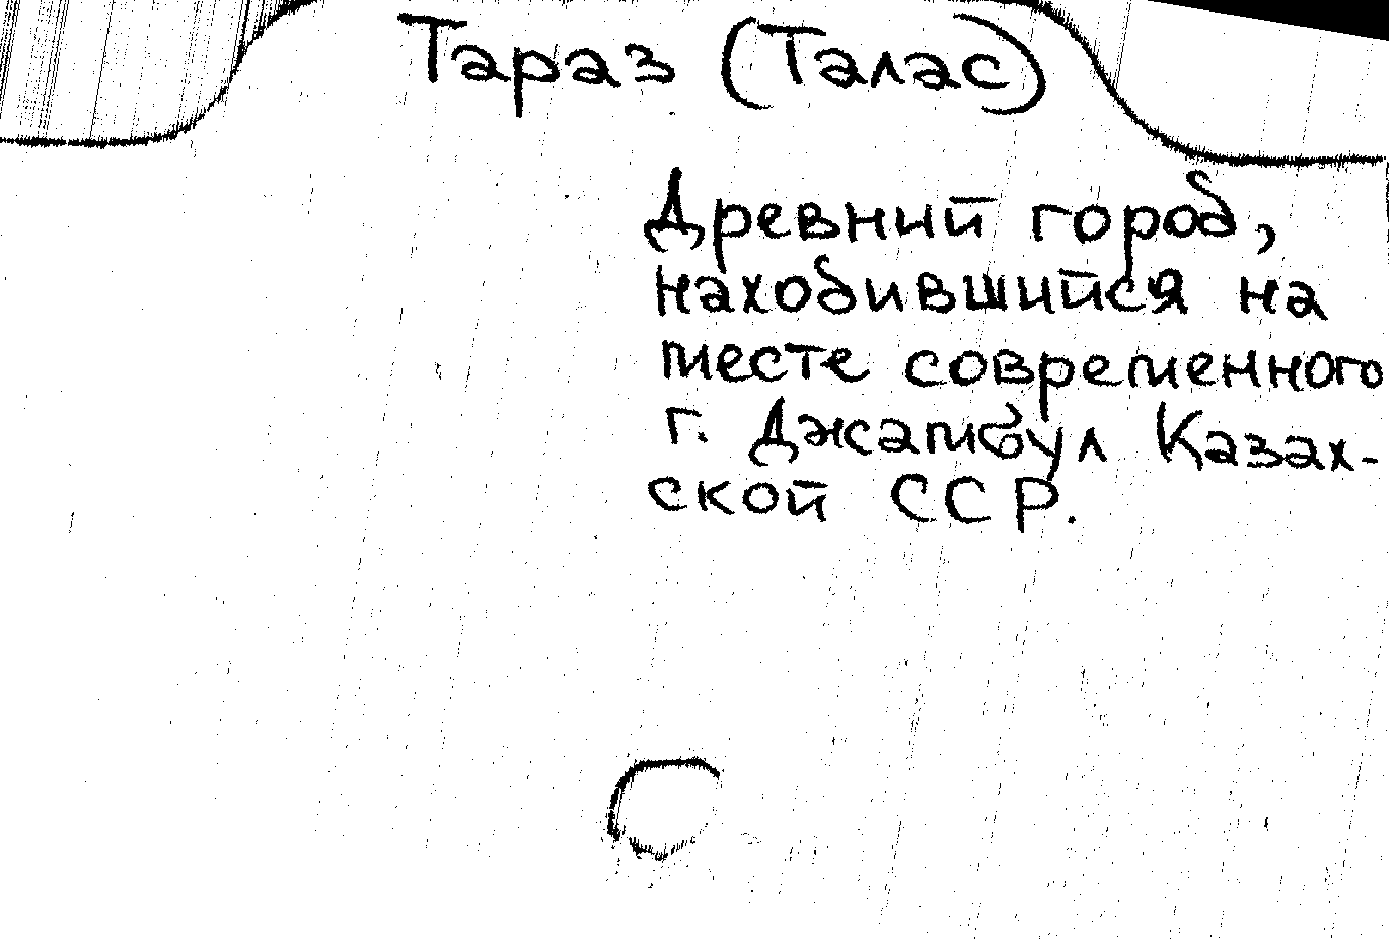 Тараз (Талас)
Древний город,
находившийся на
месте современного
г. Джамбул Казах-
ской ССР.